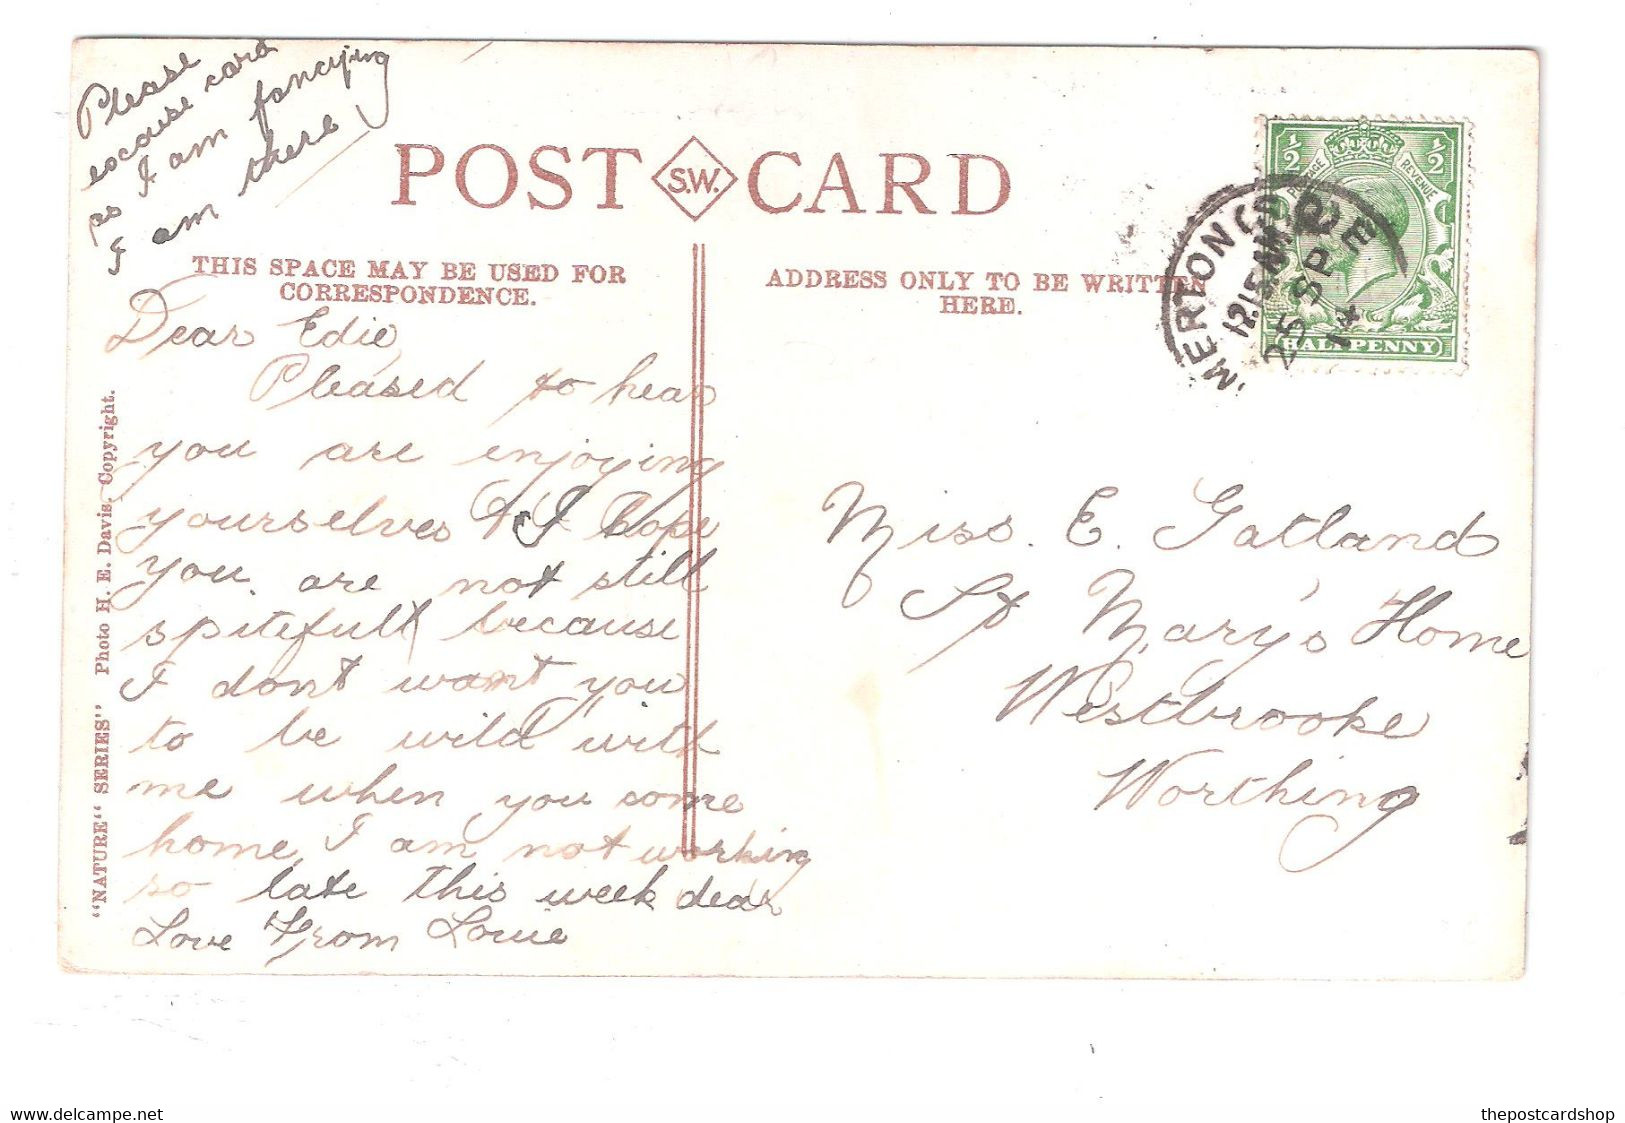 Please
excuse card
as I am fancying
I am there
POST S.W. CARD
THIS SPACE MAY BE USED FOR
CORRESPONDENCE.
ADDRESS ONLY TO BE WRITTEN
HERE.
½ ½
POSTAGE REVENUE
HALFPENNY
MERTON
12.15 M
25 SP
14
Dear Edie
Pleased to hear
you are enjoying
yourselves & I hope
you are not still
spitefull because
I dont want you
to be wild with
me when you come
home I am not working
so late this week dear
Love From Louie
Miss. E. Gatland
St Mary's Home
Westbrooke
Worthing
"NATURE" SERIES" Photo H. E. Davis. Copyright.
www.delcampe.net
thepostcardshop